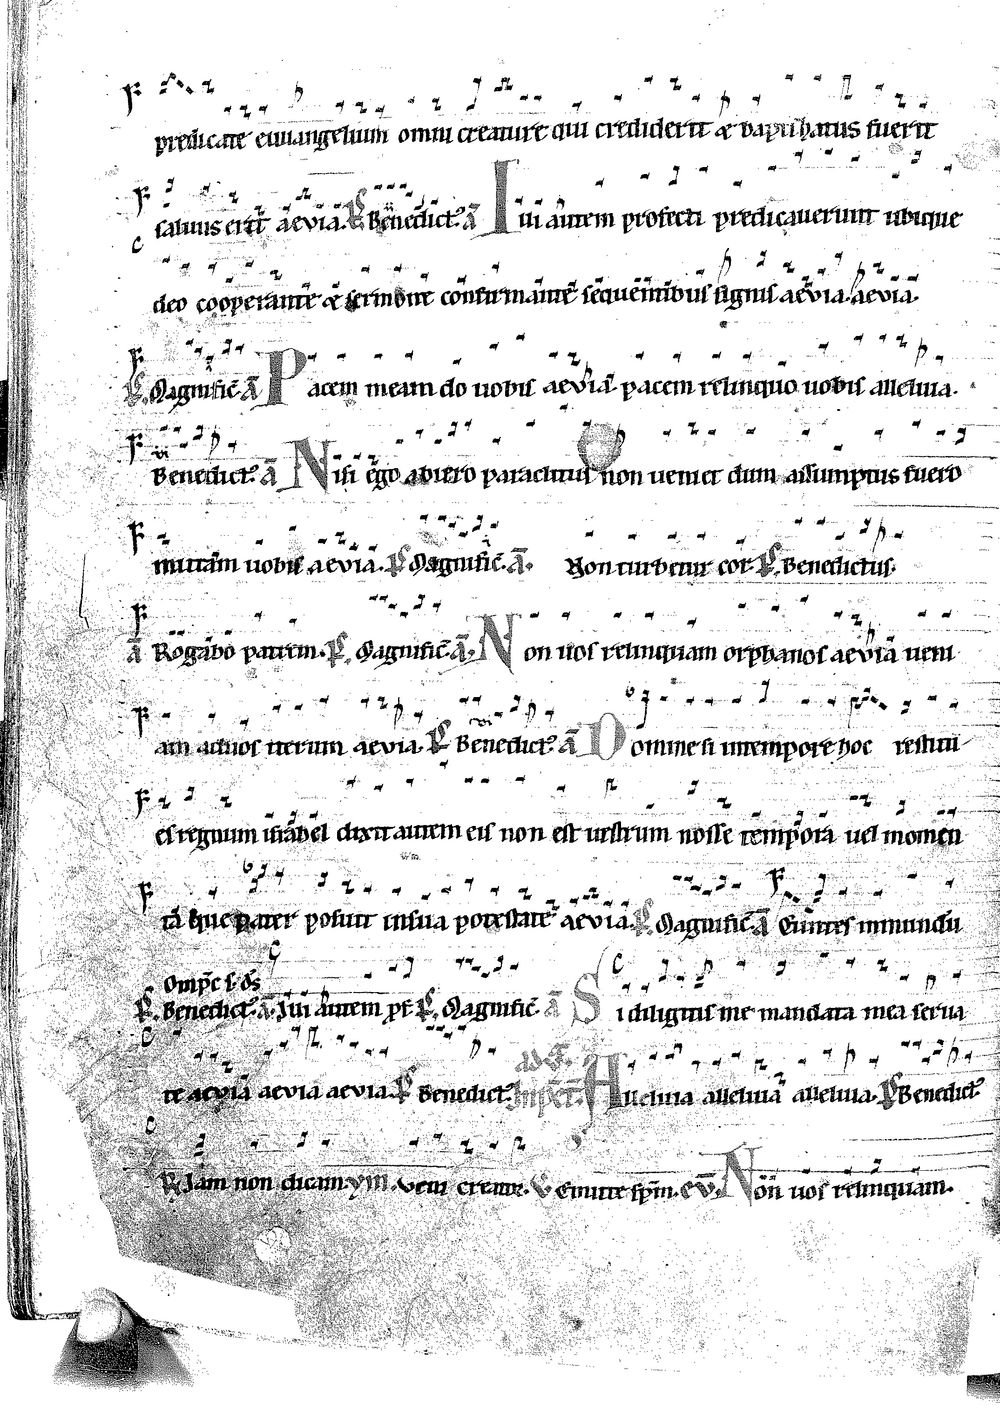 predicate euuangelium omni creature qui crediderit & baptizatus fuerit
saluus erit aeuia. Ps. Benedict9. ā Illi autem profecti predicauerunt ubique
deo cooperante & sermone confirmante sequentibus signis aeuia. aeuia.
Ps. Magnific̄. ā Pacem meam do uobis aeuia pacem relinquo uobis alleluia.
Benedict9. ā Nisi ego abiero paraclitus non ueniet dum assumptus fuero
mittam uobis aeuia. Ps. Magnific̄. ā. Non turbetur cor. Ps. Benedictus.
ā Rogabo patrem. Ps. Magnific̄. ā. Non uos relinquam orphanos aeuia ueni
am aduos iterum aeuia. Ps. Benedict9. ā Domine si intempore hoc restitu
es regnum israhel dixit autem eis non est uestrum nosse tempora uel momen
ta que pater posuit insua potestate aeuia. Ps. Magnific̄. ā Euntes inmundū
Omp̄c s. ds̄
Ps. Benedict9. ā. Illi autem pf. Ps. Magnific̄. ā Si diligitis me mandata mea serua
te aeuia aeuia aeuia. Ps. Benedict9. Alleluia alleluia alleluia. Ps. Benedict9.
R Iam non dicam. ym̄. Veni creator. V Emitte sp̄m. eū. Non uos relinquam.